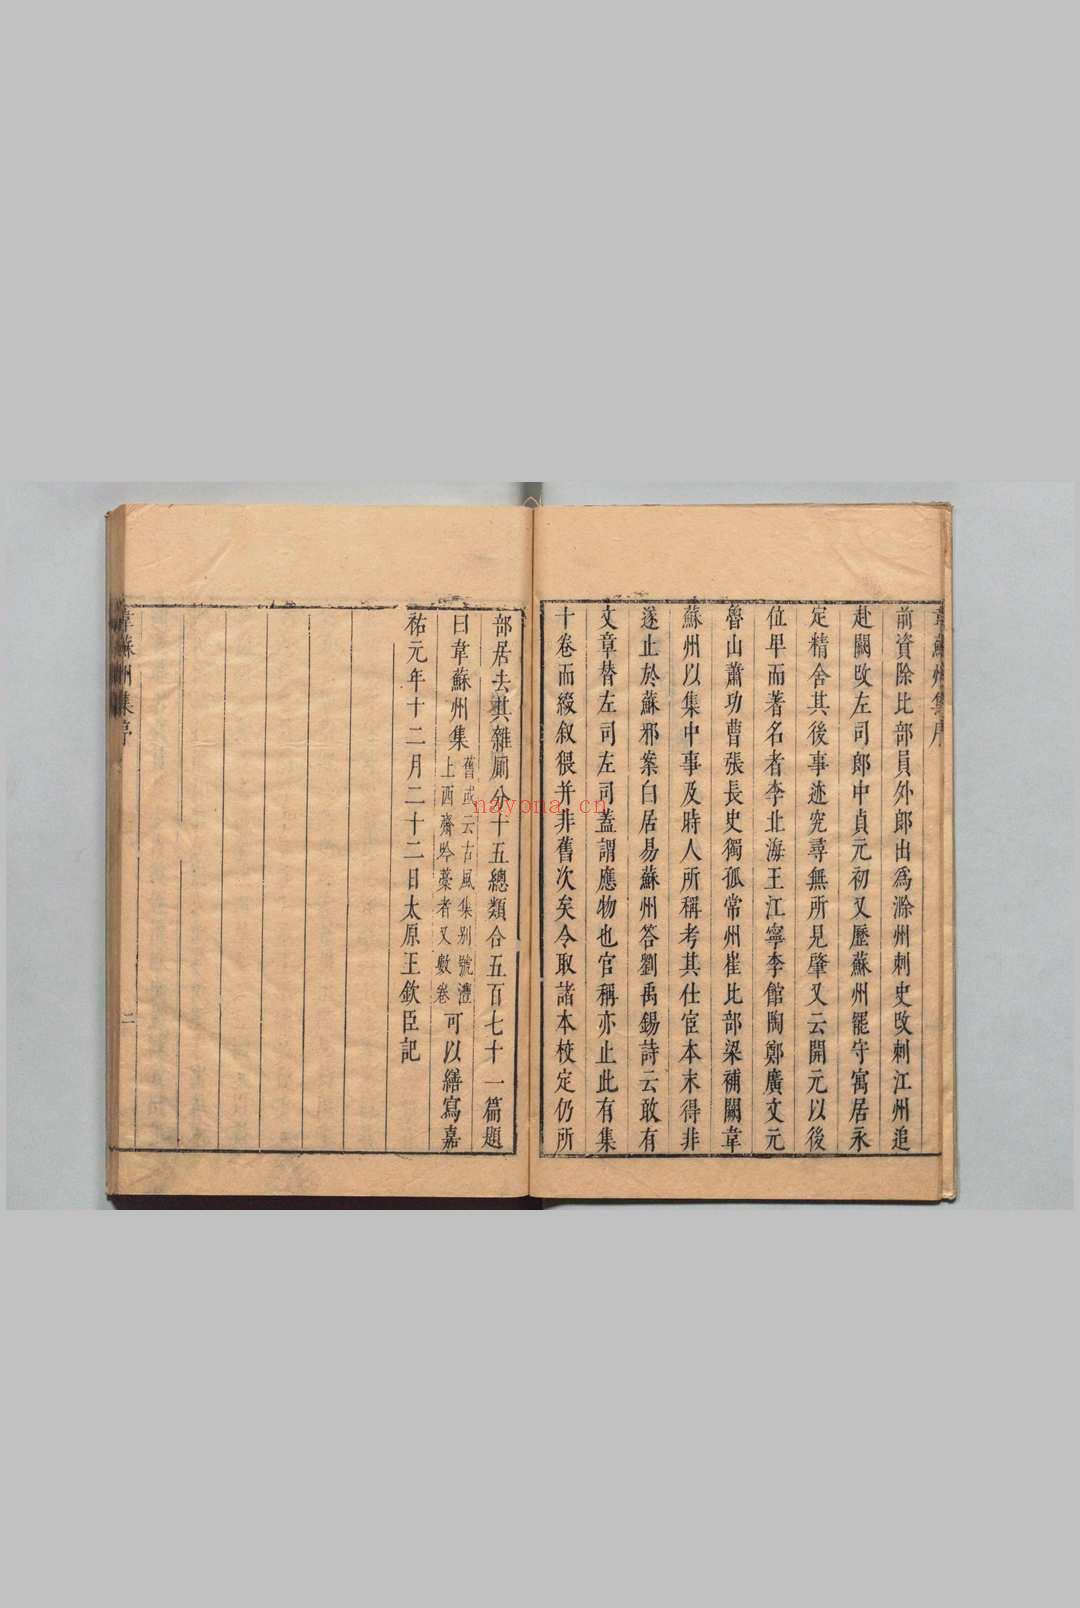 韋蘇州集序
前資除比部員外郎出爲滁州刺史攺刺江州追
赴闕攺左司郎中貞元初又歷蘇州罷守寓居永
定精舍其後事迹究尋無所見肇又云開元以後
位卑而著名者李北海王江寧李館陶鄭廣文元
魯山蕭功曹張長史獨孤常州崔比部梁補闕韋
蘇州以集中事及時人所稱考其仕宦本末得非
遂止於蘇邪案白居易蘇州答劉禹錫詩云敢有
文章替左司左司蓋謂應物也官稱亦止此有集
十卷而綴叙猥并非舊次矣今取諸本校定仍所
部居去其雜厠分十五總類合五百七十一篇題
曰韋蘇州集
舊或云古風集别號灃
上西齋吟藁者又數卷
可以繕寫嘉
祐元年十二月二十二日太原王欽臣記
韋蘇州集序
二
nayona.cn